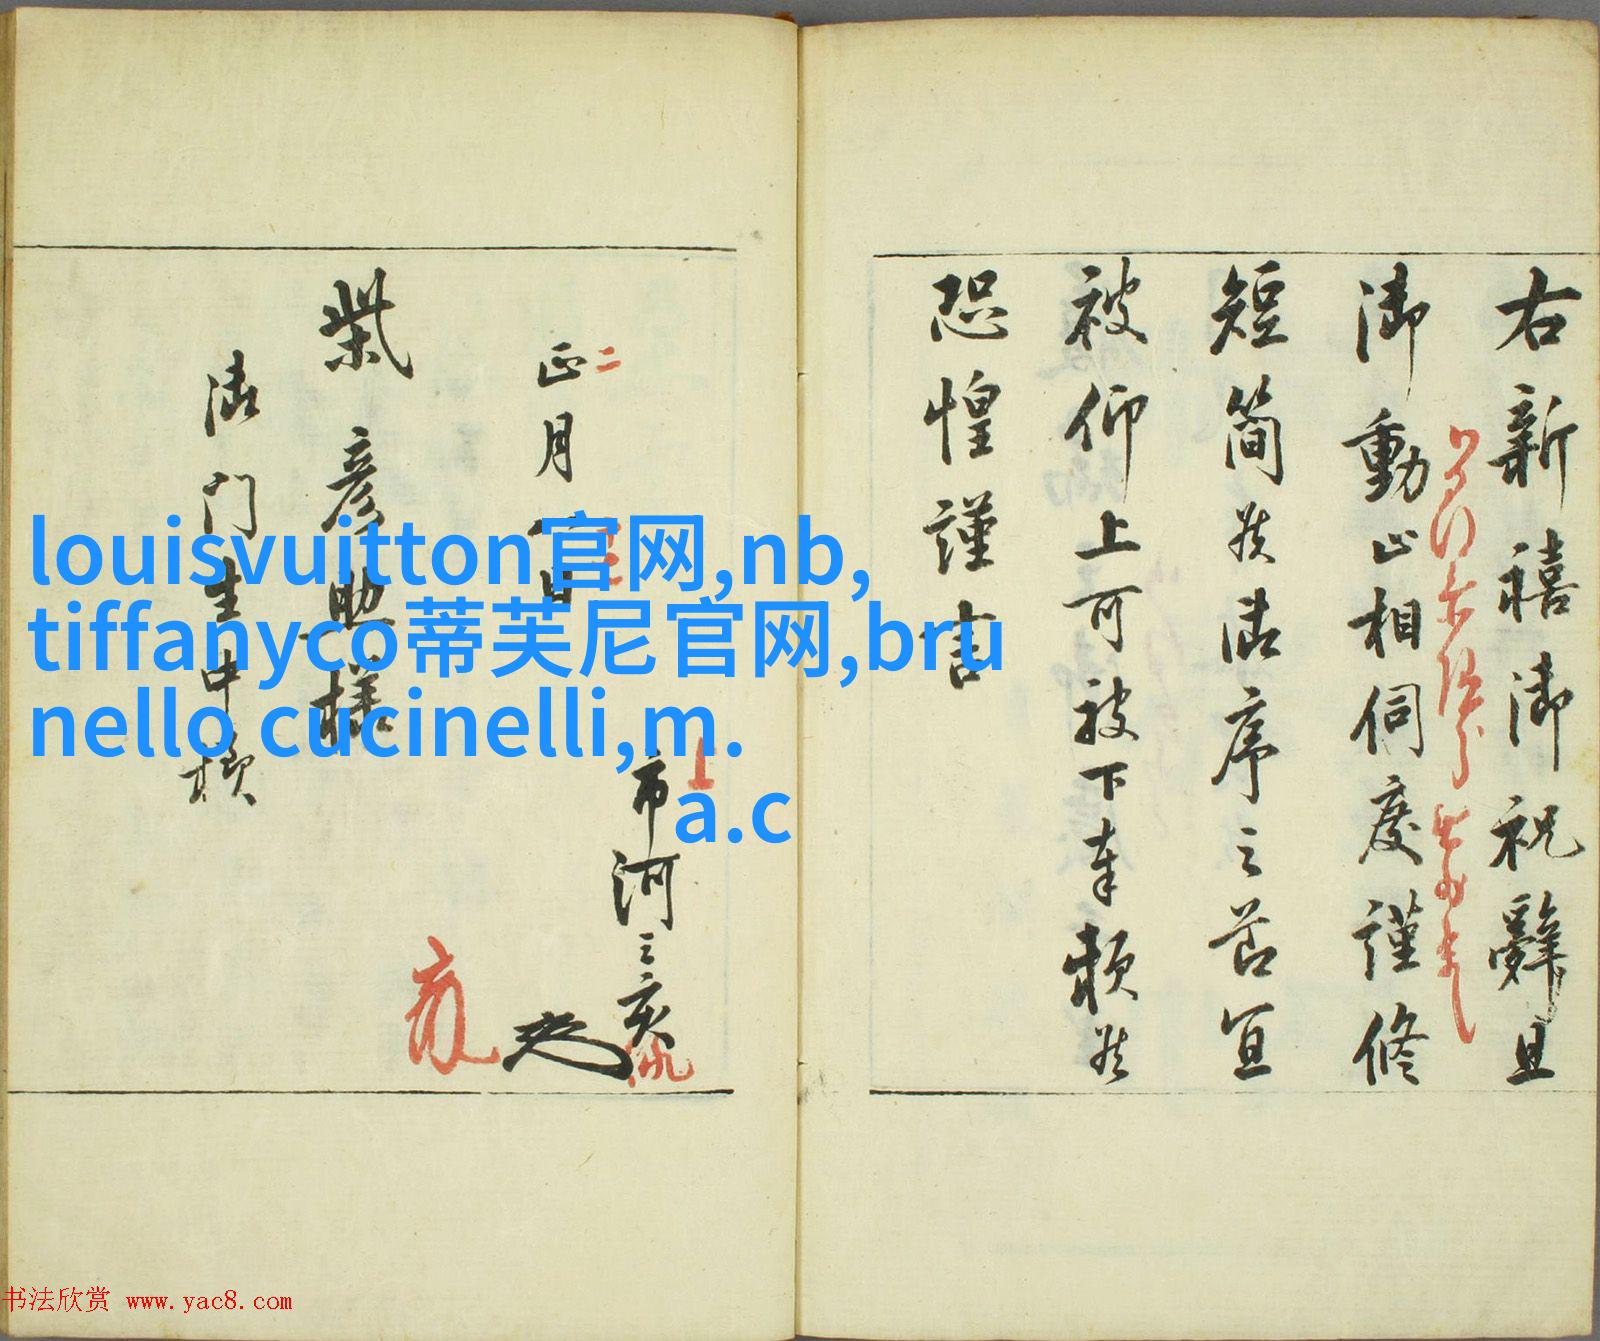 右新禧御祝辞且
御動止相伺度謹修
短簡候御序之節宜
被仰上可被下奉頼候
恐惶謹言
正月 日
二
市河三亥
柴彦助様
御門生中様
louisvuitton官网,nb,
tiffanyco蒂芙尼官网,bru
nello cucinelli,m.
a.c
书法欣赏 www.yac8.com